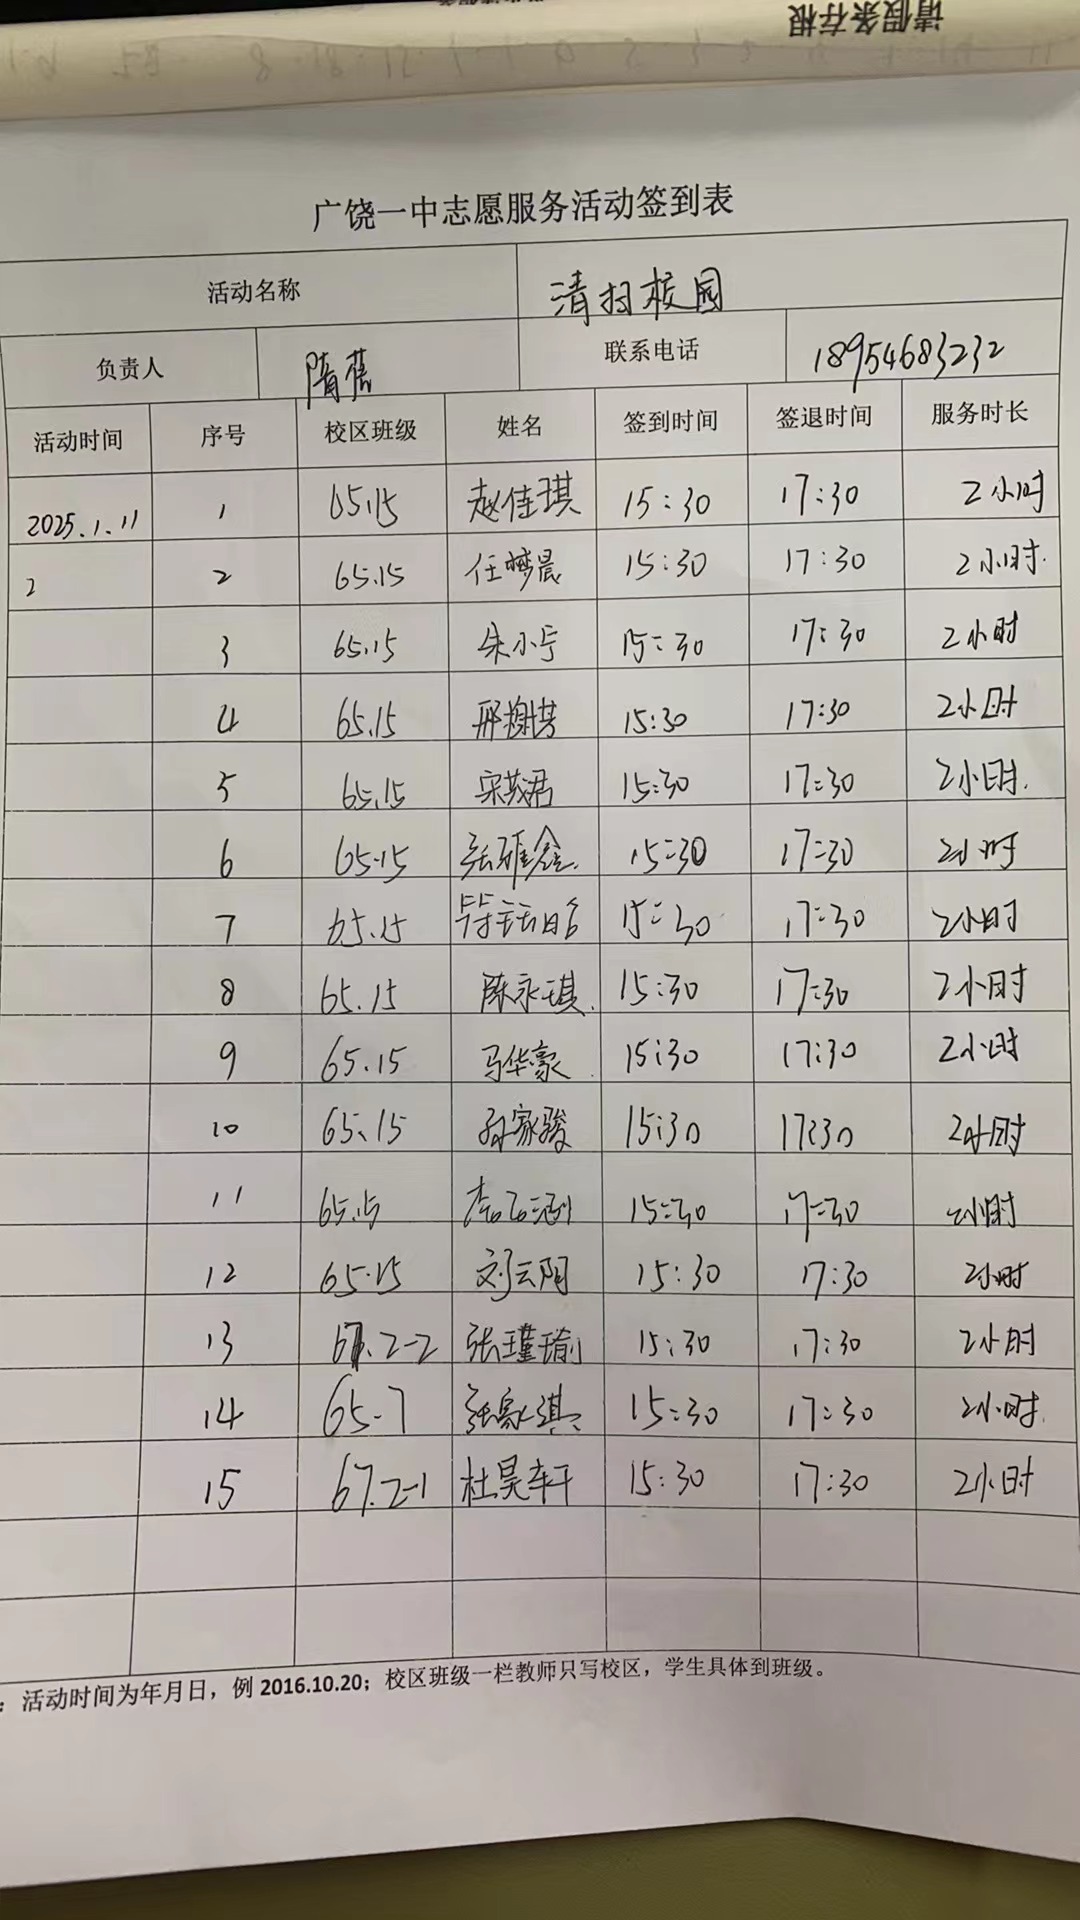 请假条存根
广饶一中志愿服务活动签到表
活动名称 清扫校园
负责人 隋蕉 联系电话 18954683232
活动时间 序号 校区班级 姓名 签到时间 签退时间 服务时长
2025.1.11 1 65.15 赵佳琪 15:30 17:30 2小时
2 2 65.15 任梦晨 15:30 17:30 2小时.
3 65.15 朱小宁 15:30 17:30 2小时
4 65.15 邢 15:30 17:30 2小时
5 65.15 宋茂君 15:30 17:30 2小时.
6 65.15 张雅鑫 15:30 17:30 2小时
7 65.15 15:30 17:30 2小时
8 65.15 陈永琪. 15:30 17:30 2小时
9 65.15 马华豪 15:30 17:30 2小时
10 65.15 孙家骏 15:30 17:30 2小时
11 65.15 15:30 17:30 2小时
12 65.15 刘云阳 15:30 17:30 2小时
13 67.2-2 张瑾瑜 15:30 17:30 2小时
14 65-7 张家淇 15:30 17:30 2小时.
15 67.2-1 杜昊轩 15:30 17:30 2小时
：活动时间为年月日，例 2016.10.20；校区班级一栏教师只写校区，学生具体到班级。